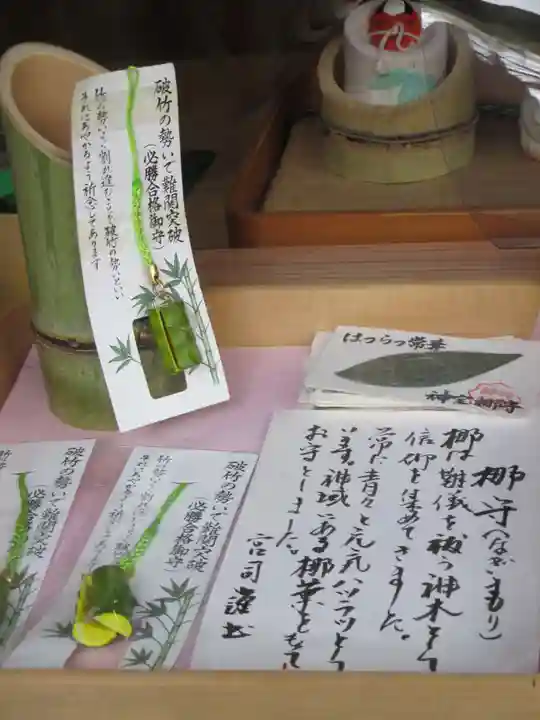 破竹の勢いで難関突破
(必勝合格御守)
竹の勢いよく割れ進むことを破竹の勢いといい
それにあやかるよう祈念してあります
はつらつ常葉
破竹の勢いで難関突破
(必勝合格御守)
破竹の勢いで難関突破
(必勝合格御守)
梛守(なぎまもり)
梛は難儀を祓う神木として
信仰を集めてきました。
常に青々と元気ハツラツとして
います。神域にある梛葉をもって
お守としました。
宮司